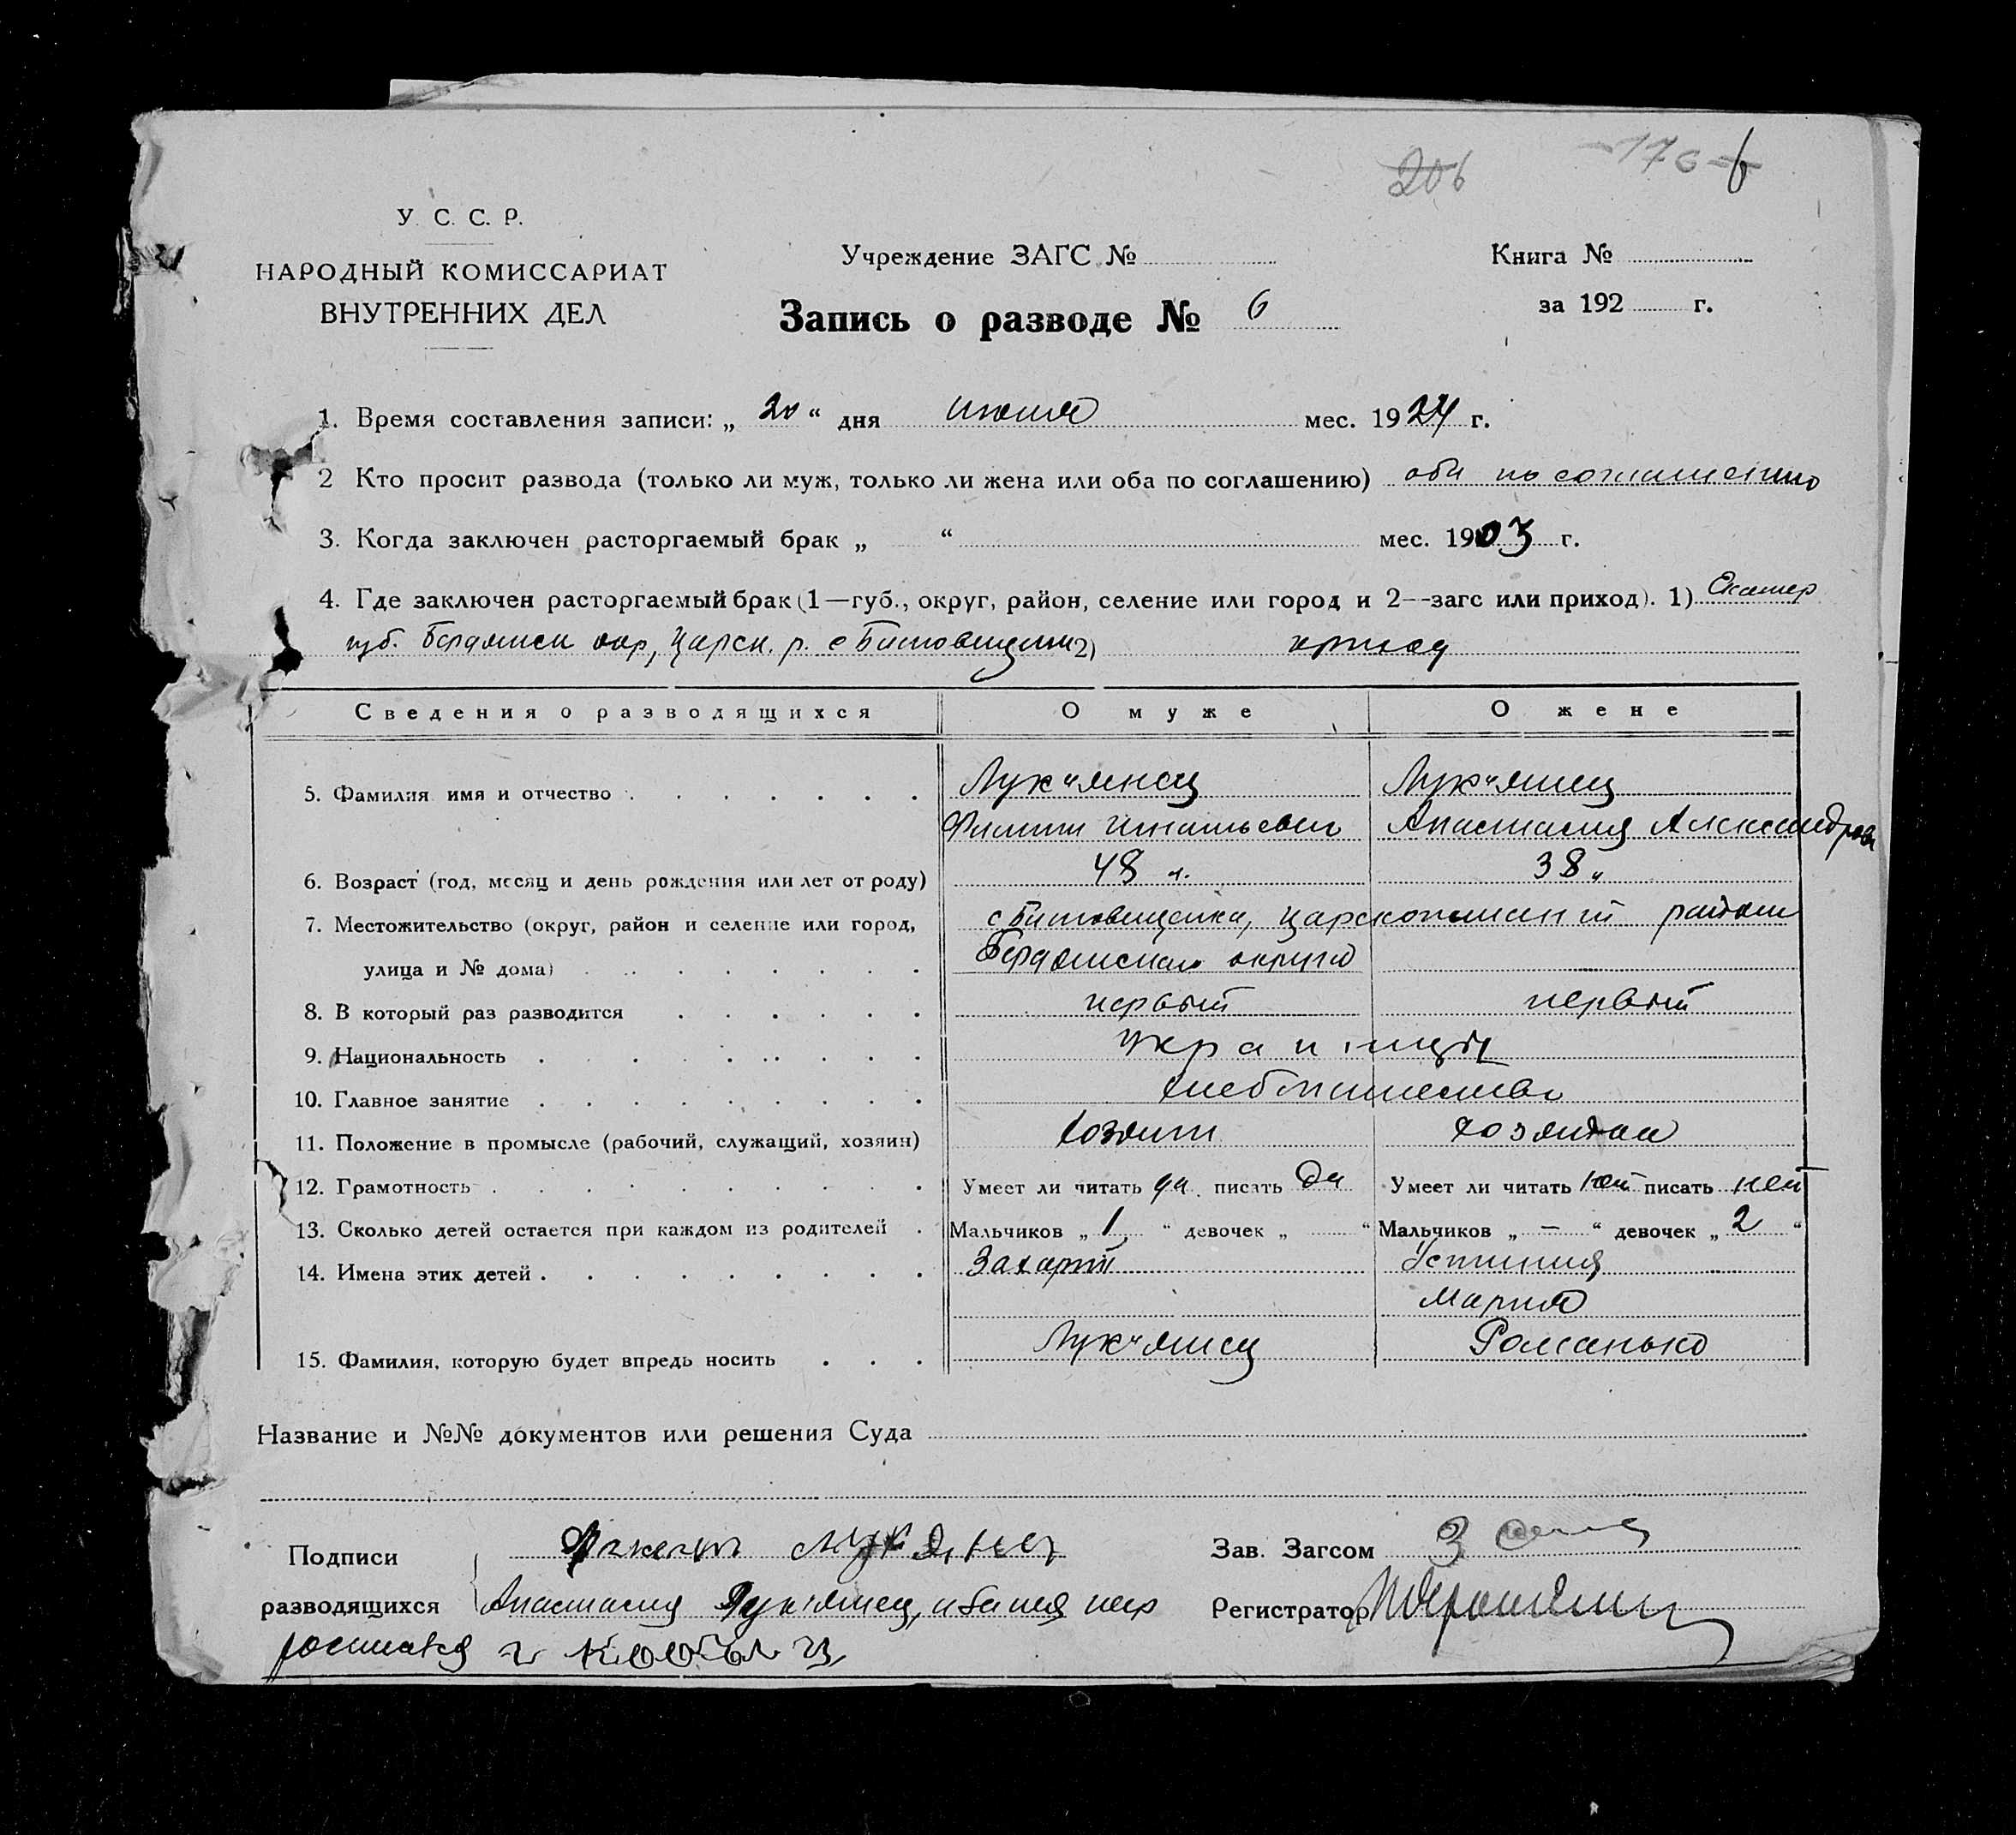 206 -176- 6
У. С. С. Р.
НАРОДНЫЙ КОМИССАРИАТ
ВНУТРЕННИХ ДЕЛ
Учреждение ЗАГС №
Книга №
за 192 г.
Запись о разводе № 6
1. Время составления записи: „ 20 “ дня июня мес. 1924 г.
2 Кто просит развода (только ли муж, только ли жена или оба по соглашению) оба по соглашению
3. Когда заключен расторгаемый брак „ “ мес. 1903 г.
4. Где заключен расторгаемый брак (1—губ., округ, район, селение или город и 2—загс или приход). 1) Екатер
губ. Бердянск окр, Царек. р. с 2) приход
Сведения о разводящихся О муже О жене
5. Фамилия имя и отчество Лук"янец Лук"янец
Филипп Игнатьевич Анастасия Александров
6. Возраст (год, месяц и день рождения или лет от роду) 48 л. 38 "
7. Местожительство (округ, район и селение или город, района
улица и № дома) Бердянского округа
8. В который раз разводится первый первый
9. Национальность Украинцы
10. Главное занятие хлебопашество
11. Положение в промысле (рабочий, служащий, хозяин) хозяин хозяйка
12. Грамотность Умеет ли читать да писать да Умеет ли читать нет писать нет
13. Сколько детей остается при каждом из родителей Мальчиков „ 1 “ девочек „ “ Мальчиков „ — “ девочек „ 2 “
14. Имена этих детей Захарий Устиния
Мария
15. Фамилия, которую будет впредь носить Лук"янец Романько
Название и №№ документов или решения Суда
Подписи Лукянец Зав. Загсом
разводящихся Анастасия Лук"янец, Регистратор